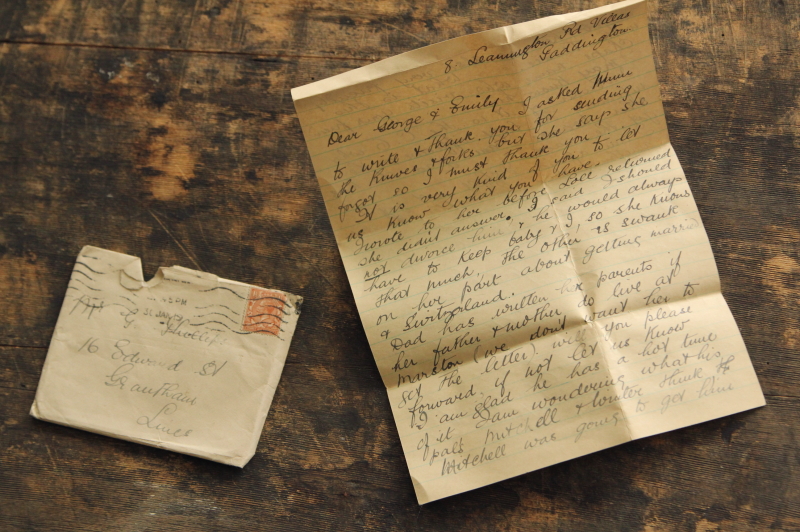 8. Leamington Rd Villas
Paddington
Dear George & Emily I asked Minnie
to write & Thank you for sending
the knives & forks but she says she
forgot so I must thank you
It is very kind of you to let
us know what you have.
I wrote to her before Lall returned
She didn't answer. I said I should
not divorce him, & he would always
have to keep baby & I, so she knows
that much, the other is swank
on her part about getting married
& Switzerland.
Dad has written her parents if
her father & mother do live at
Marston (we don't want her to
get the letter) will you please
forward if not let us know
I am glad he has a hot time
of it I am wondering what his
pals Mitchell & think if
Mitchell was going to get him
45 PM
31 JAN
16 Edward St
Grantham
Lincs